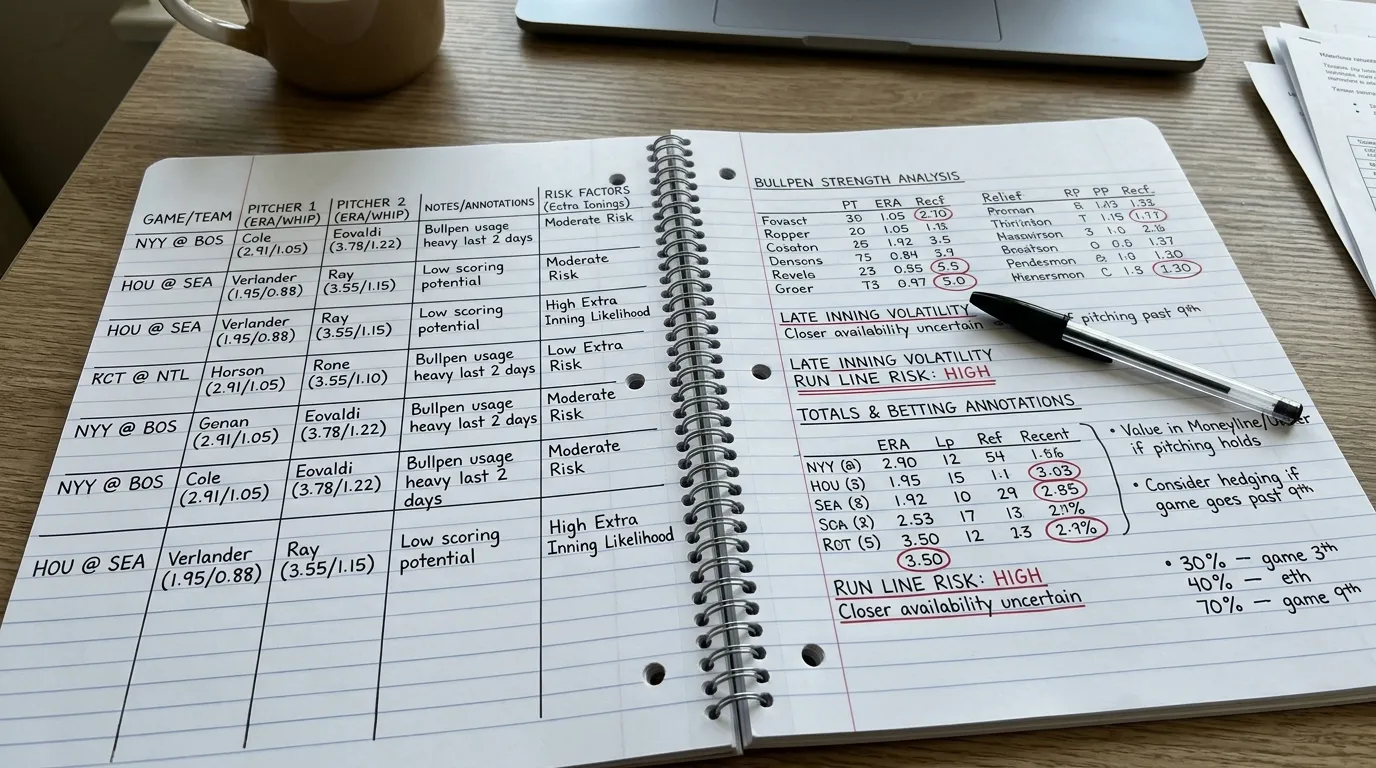 GAME/TEAM PITCHER 1 (ERA/WHIP) PITCHER 2 (ERA/WHIP) NOTES/ANNOTATIONS RISK FACTORS (Ectra Ionings)
NYY @ BOS Cole (2.91/1.05) Eovaldi (3.78/1.22) Bullpen usage heavy last 2 days Moderate Risk
HOU @ SEA Verlander (1.95/0.88) Ray (3.55/1.15) Low scoring potential Moderate Risk
HOU @ SEA Verlander (1.95/0.88) Ray (3.55/1.15) Low scoring potential High Extra Inning Likelihood
RCT @ NTL Horson (2.91/1.05) Rone (3.55/1.10) Bullpen usage heavy last 2 days Low Extra Risk
NYY @ BOS Genan (2.91/1.05) Eovaldi (3.78/1.22) Bullpen usage heavy last 2 days Moderate Risk
NYY @ BOS Cole (2.91/1.05) Eovaldi (3.78/1.22) Bullpen usage heavy last 2 days Moderate Risk
HOU @ SEA Verlander (1.95/0.88) Ray (3.55/1.15) Low scoring potential High Extra Inning Likelihood
BULLPEN STRENGTH ANALYSIS
PT ERA Recf
Fovasct 30 1.05 2.70
Ropper 20 1.05 1.15
Cosaton 25 1.92 3.5
Densons 75 0.84 3.9
Revels 23 0.55 5.5
Groer T3 0.97 5.0
Relief RP PP Recf.
Proman 1.33
Thirlinson T 1.15
3 1.0
0 0.6 1.37
Pendesmon 1.0 1.30
C 1.8 1.30
LATE INNING VOLATILITY
Closer availability uncertain if pitching past 9th
LATE INNING VOLATILITY
RUN LINE RISK: HIGH
TOTALS & BETTING ANNOTATIONS
ERA Lp Ref Recent
NYY (@) 2.90 12 54 1.66
HOU (3) 1.95 15 1.1 3.03
SEA (8) 1.92 10 29 2.85
SCA (2) 2.53 17 13.
ROT (5) 3.50 12 1.3 2.9%
3.50
RUN LINE RISK: HIGH
Closer availability uncertain
• Value in Moneyline/
if pitching holds
• Consider hedging if
game goes past 9th
• 30% — game 3th
40% — eth
70% — game 9th